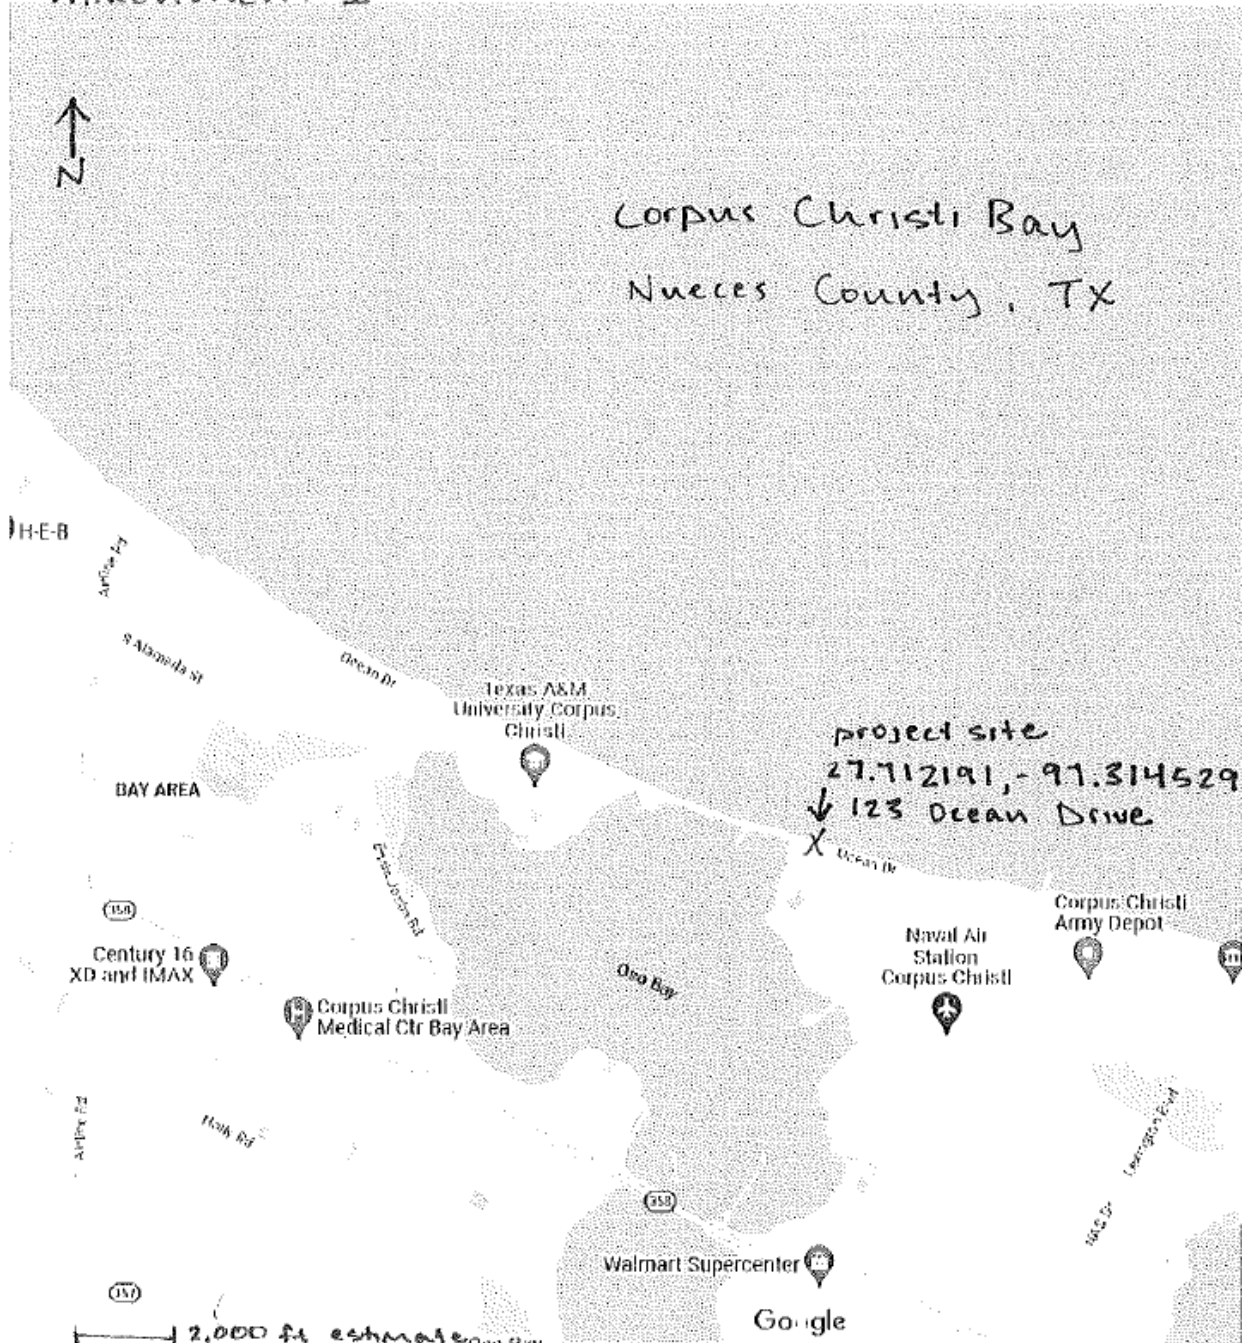 N
Corpus Christi Bay
Nueces County, TX
H-E-B
Airline Rd
S Alameda St
Ocean Dr
Texas A&M
University Corpus
Christi
project site
27.712191, -97.314529
123 Ocean Drive
X
Ocean Dr
BAY AREA
Ennis Joslin Rd
358
Century 16
XD and IMAX
Corpus Christi
Medical Ctr Bay Area
Oso Bay
Naval Air
Station
Corpus Christi
Corpus Christi
Army Depot
Airline Rd
Holly Rd
Lexington Blvd
NAS Dr
358
Walmart Supercenter
357
Google
2,000 ft estimate